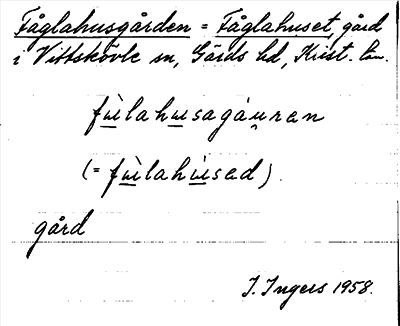 Fåglahusgården = Fåglahuset, gård
i Vittskövle sn, Gärds hd, Krist. län.
fùlahusagáu̯ran
(= fùlahúsad).
gård
I. Ingers 1958.